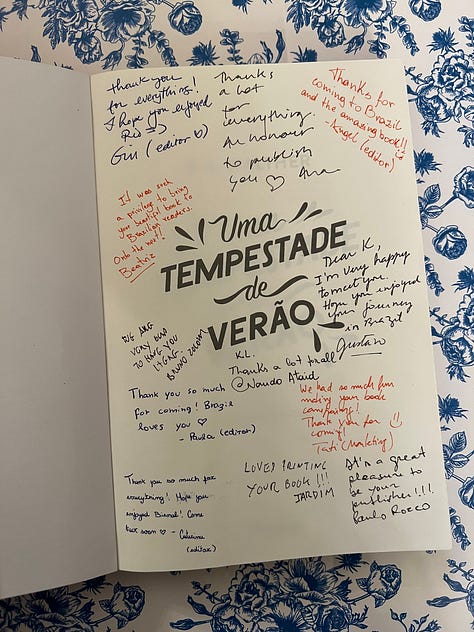 thank you
for everything!
I hope you enjoyed
Rio =)
Giu (editor ♡)
Thanks
a lot
for
everything.
An honour
to publish
you ♡ Ana
Thanks for
coming to Brazil
and the amazing book!!
- Angel (editor)
It was such
a privilege to bring
your beautiful book to
Brazilian readers.
Onto the next!
Beatriz
Uma
TEMPESTADE
de
VERÃO
K.L.
Dear K,
I'm very happy
to meet you.
Hope you enjoyed
your journey
in Brazil
Gustavo
WE ARE
VERY
TO HAVE YOU
BRUNO
Thanks a lot for all
@Nando
Thank you so much
for coming! Brazil
loves you ♡
- Paula (editor)
We had so much fun
making your book
campaing!
Thank you for
coming!
Tati (Marketing)
Thank you so much for
everything! Hope you
enjoyed Bienal! Come
back soon ♡ - Catarina
(editor)
LOVED PRINTING
YOUR BOOK!!!
JARDIM
It's a great
pleasure to
be your
publisher!!!!
Paulo Rocco